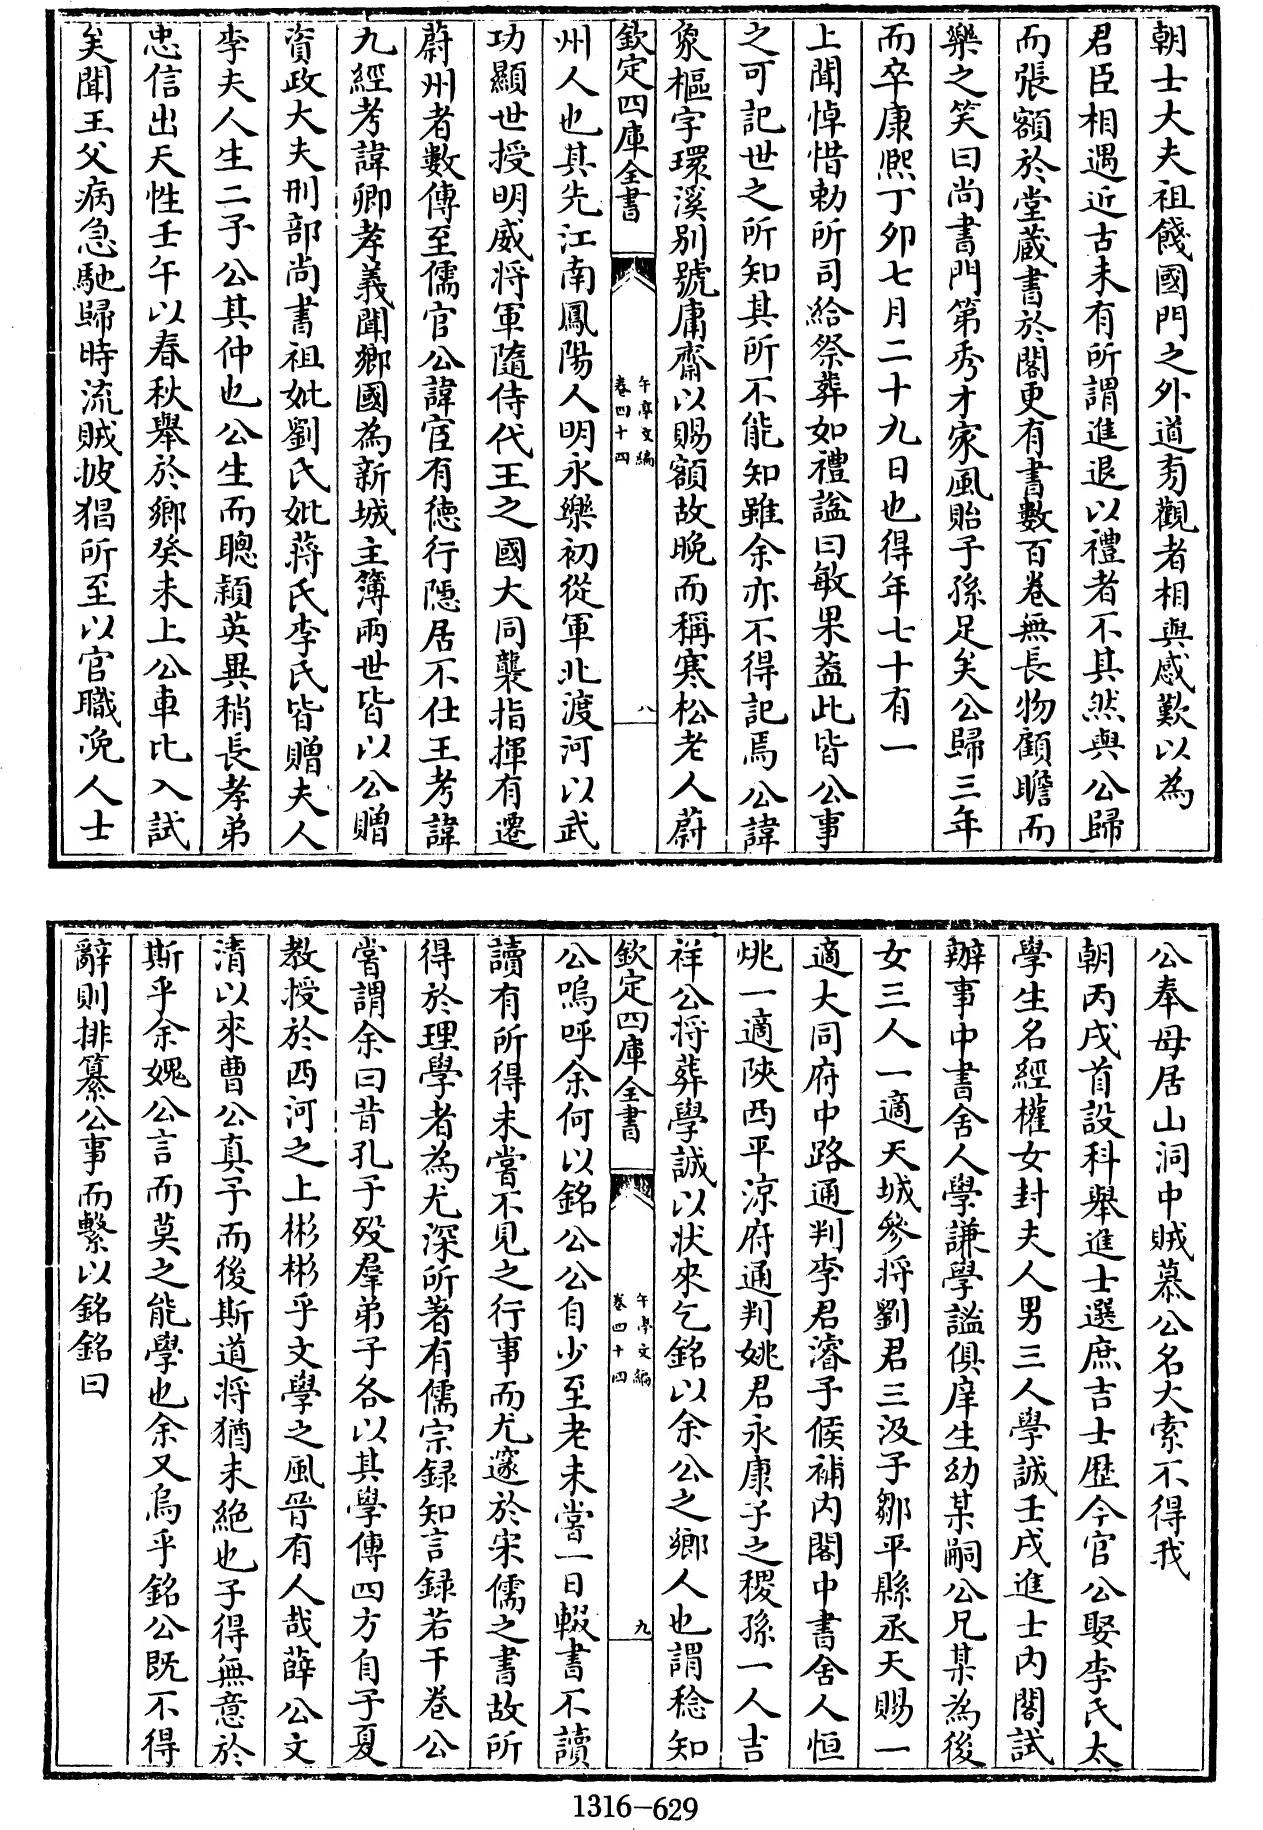 朝士大夫祖餞國門之外道旁觀者相與感歎以為
君臣相遇近古未有所謂進退以禮者不其然與公歸
而張額於堂蔵書於閣更有書數百卷無長物顧瞻而
樂之笑曰尚書門第秀才家風貽子孫足矣公歸三年
而卒康熙丁夘七月二十九日也得年七十有一
上聞悼惜勅所司給祭葬如禮諡曰敏果葢此皆公事
之可記世之所知其所不能知雖余亦不得記焉公諱
象樞字環溪别號庸齋以賜額故晩而稱寒松老人蔚
欽定四庫全書
午亭文編
卷四十四
八
州人也其先江南鳳陽人明永樂初從軍北渡河以武
功顯世授明威将軍隨侍代王之國大同襲指揮有遷
蔚州者數傳至儒官公諱宦有徳行隠居不仕王考諱
九經考諱卿孝義聞鄉國為新城主簿兩世皆以公贈
資政大夫刑部尚書祖妣劉氏妣蔣氏李氏皆贈夫人
李夫人生二子公其仲也公生而聰穎英異稍長孝弟
忠信出天性壬午以春秋舉於鄉癸未上公車比入試
矣聞王父病急馳歸時流賊披猖所至以官職浼人士
公奉母居山洞中賊慕公名大索不得我
朝丙戌首設科舉進士選庶吉士歴今官公娶李氏太
學生名經權女封夫人男三人學誠壬戌進士内閣試
辦事中書舍人學謙學謐俱庠生幼某嗣公兄某為後
女三人一適天城參将劉君三汲子鄒平縣丞天賜一
適大同府中路通判李君濬子候補内閣中書舍人恒
烑一適陜西平涼府通判姚君永康子之稷孫一人吉
祥公将葬學誠以状來乞銘以余公之鄉人也謂稔知
欽定四庫全書
午亭文編
卷四十四
九
公嗚呼余何以銘公公自少至老未嘗一日輟書不讀
讀有所得未嘗不見之行事而尤邃於宋儒之書故所
得於理學者為尤深所著有儒宗録知言録若干卷公
嘗謂余曰昔孔子殁羣弟子各以其學傳四方自子夏
教授於西河之上彬彬乎文學之風晉有人哉薛公文
清以來曹公真予而後斯道将猶未絶也子得無意於
斯乎余媿公言而莫之能學也余又烏乎銘公既不得
辭則排纂公事而繫以銘銘曰
1316-629